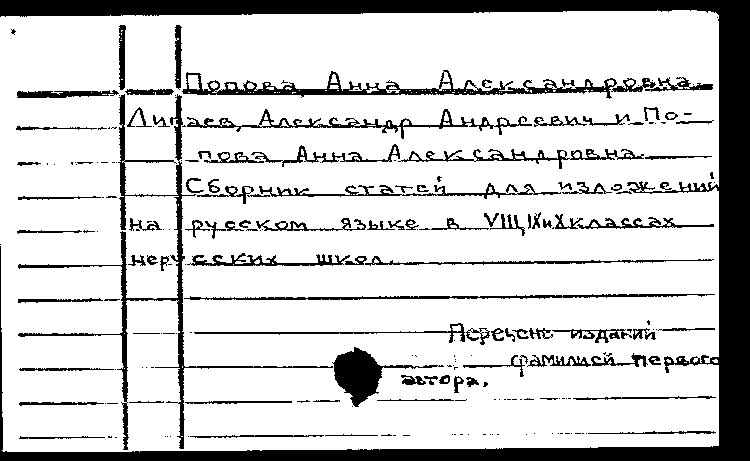 Попова, Анна Александровна.
Липаев, Александр Андреевич и По-
пова, Анна Александровна.
Сборник статей для изложений
на русском языке в VIII, IX и X классах
нерусских школ.
изданий
фамилией первого
автора.